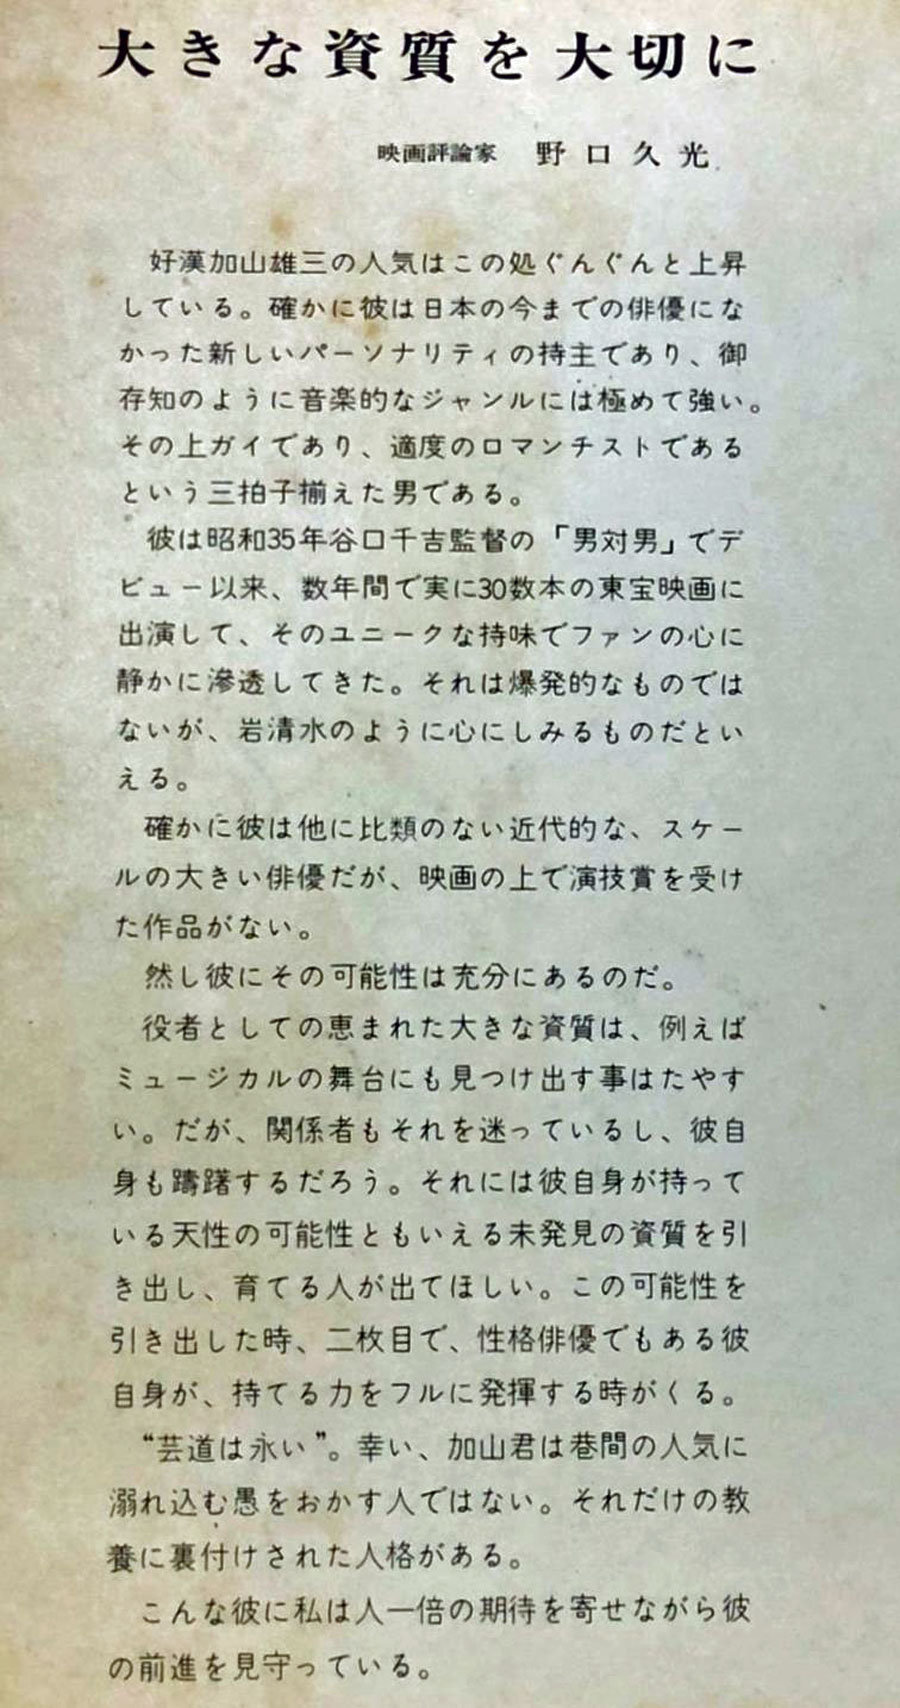 大きな資質を大切に
映画評論家　野口久光
　好漢加山雄三の人気はこの処ぐんぐんと上昇
している。確かに彼は日本の今までの俳優にな
かった新しいパーソナリティの持主であり、御
存知のように音楽的なジャンルには極めて強い。
その上ガイであり、適度のロマンチストである
という三拍子揃えた男である。
　彼は昭和35年谷口千吉監督の「男対男」でデ
ビュー以来、数年間で実に30数本の東宝映画に
出演して、そのユニークな持味でファンの心に
静かに滲透してきた。それは爆発的なものでは
ないが、岩清水のように心にしみるものだとい
える。
　確かに彼は他に比類のない近代的な、スケー
ルの大きい俳優だが、映画の上で演技賞を受け
た作品がない。
　然し彼にその可能性は充分にあるのだ。
　役者としての恵まれた大きな資質は、例えば
ミュージカルの舞台にも見つけ出す事はたやす
い。だが、関係者もそれを迷っているし、彼自
身も躊躇するだろう。それには彼自身が持って
いる天性の可能性ともいえる未発見の資質を引
き出し、育てる人が出てほしい。この可能性を
引き出した時、二枚目で、性格俳優でもある彼
自身が、持てる力をフルに発揮する時がくる。
　“芸道は永い”。幸い、加山君は巷間の人気に
溺れ込む愚をおかす人ではない。それだけの教
養に裏付けされた人格がある。
　こんな彼に私は人一倍の期待を寄せながら彼
の前進を見守っている。